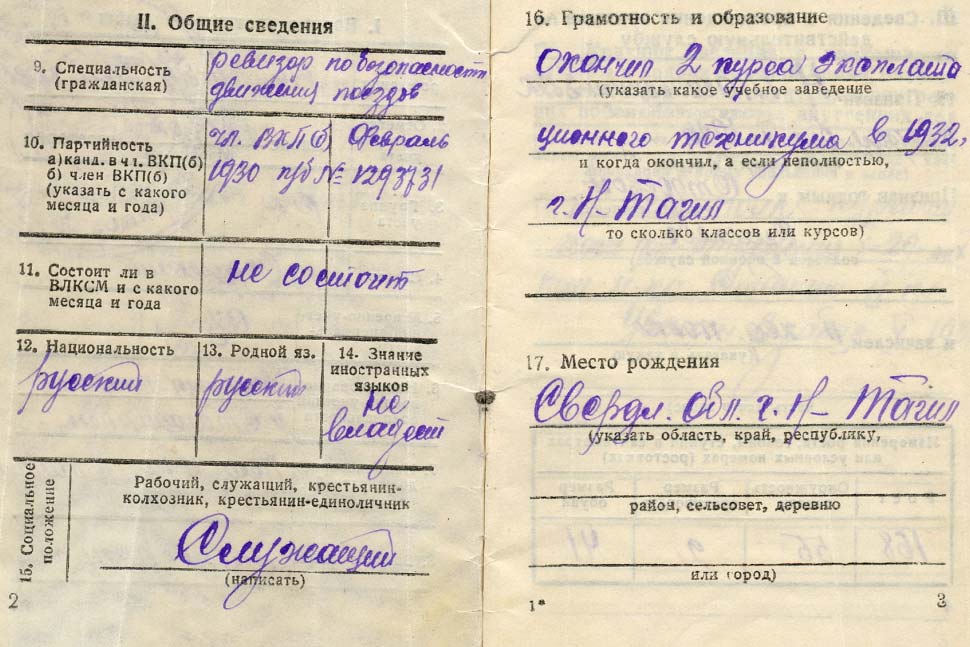 II. Общие сведения
9. Специальность
(гражданская)
ревизор по безопасности
движения поездов
10. Партийность
а) канд. в чл. ВКП(б)
б) член ВКП(б)
(указать с какого
месяца и года)
чл. ВКП(б) Февраль
1930 п/б № 1293731
11. Состоит ли в
ВЛКСМ и с какого
месяца и года
не состоит
12. Национальность
русский
13. Родной яз.
русский
14- Знание
иностранных
языков
не
владеет
15. Социальное
положение
Рабочий, служащий, крестьянин-
колхозник, крестьянин-единоличник
Служащий
(написать)
2
16. Грамотность и образование
окончил 2 курса эксплоата
(указать какое учебное заведение
ционного техникума в 1932г
и когда окончил, а если неполностью,
г. Н-Тагил
то сколько классов или курсов)
17. Место рождения
Свердл. обл. г. Н-Тагил
(указать область, край, республику,
район, сельсовет, деревню
или город)
1*
3